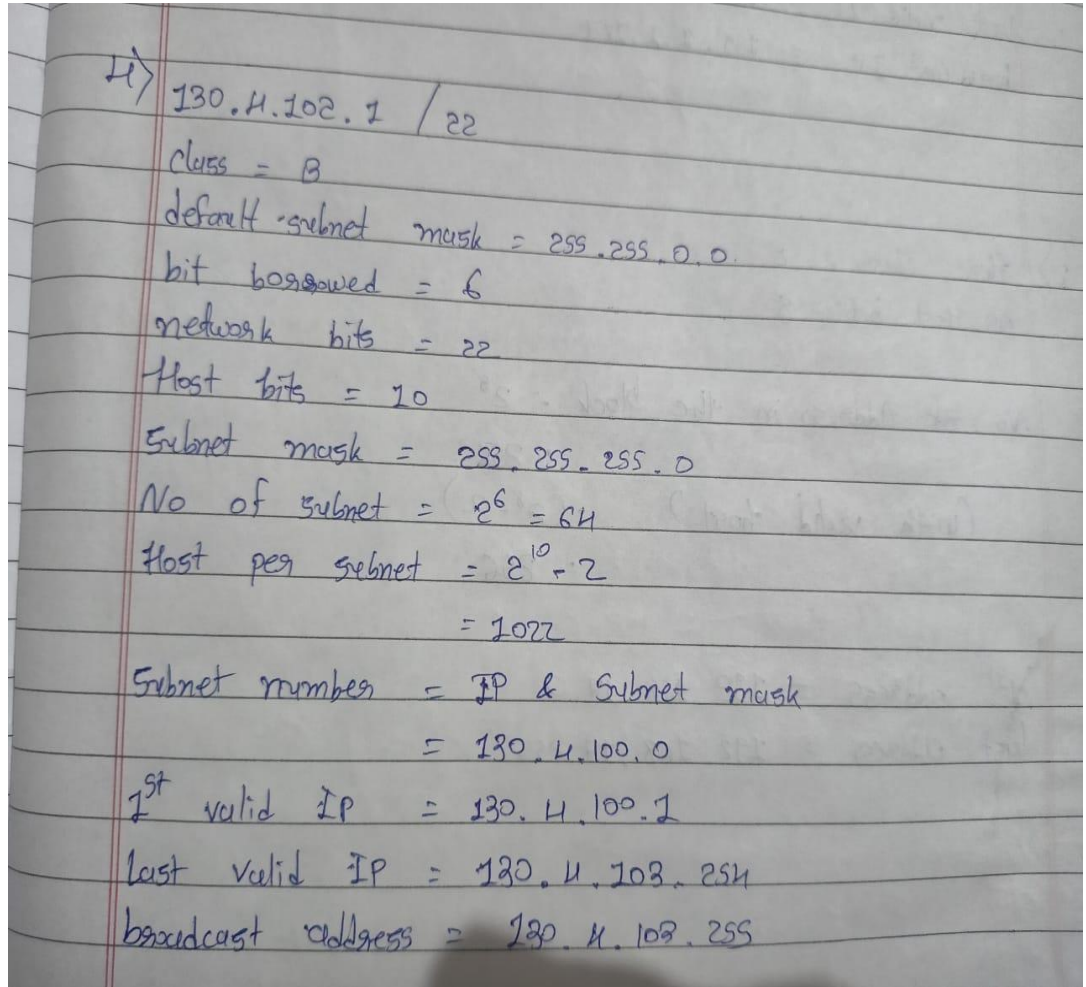 4)
130.4.102.1 / 22
class = B
default subnet mask = 255.255.0.0.
bit borrowed = 6
network bits = 22
Host bits = 10
Subnet mask = 255.255.255.0
No of subnet = 2⁶ = 64
Host per subnet = 2¹⁰ - 2
= 1022
Subnet number = IP & Subnet mask
= 130.4.100.0
1st valid IP = 130.4.100.1
last valid IP = 130.4.103.254
broadcast address = 130.4.103.255